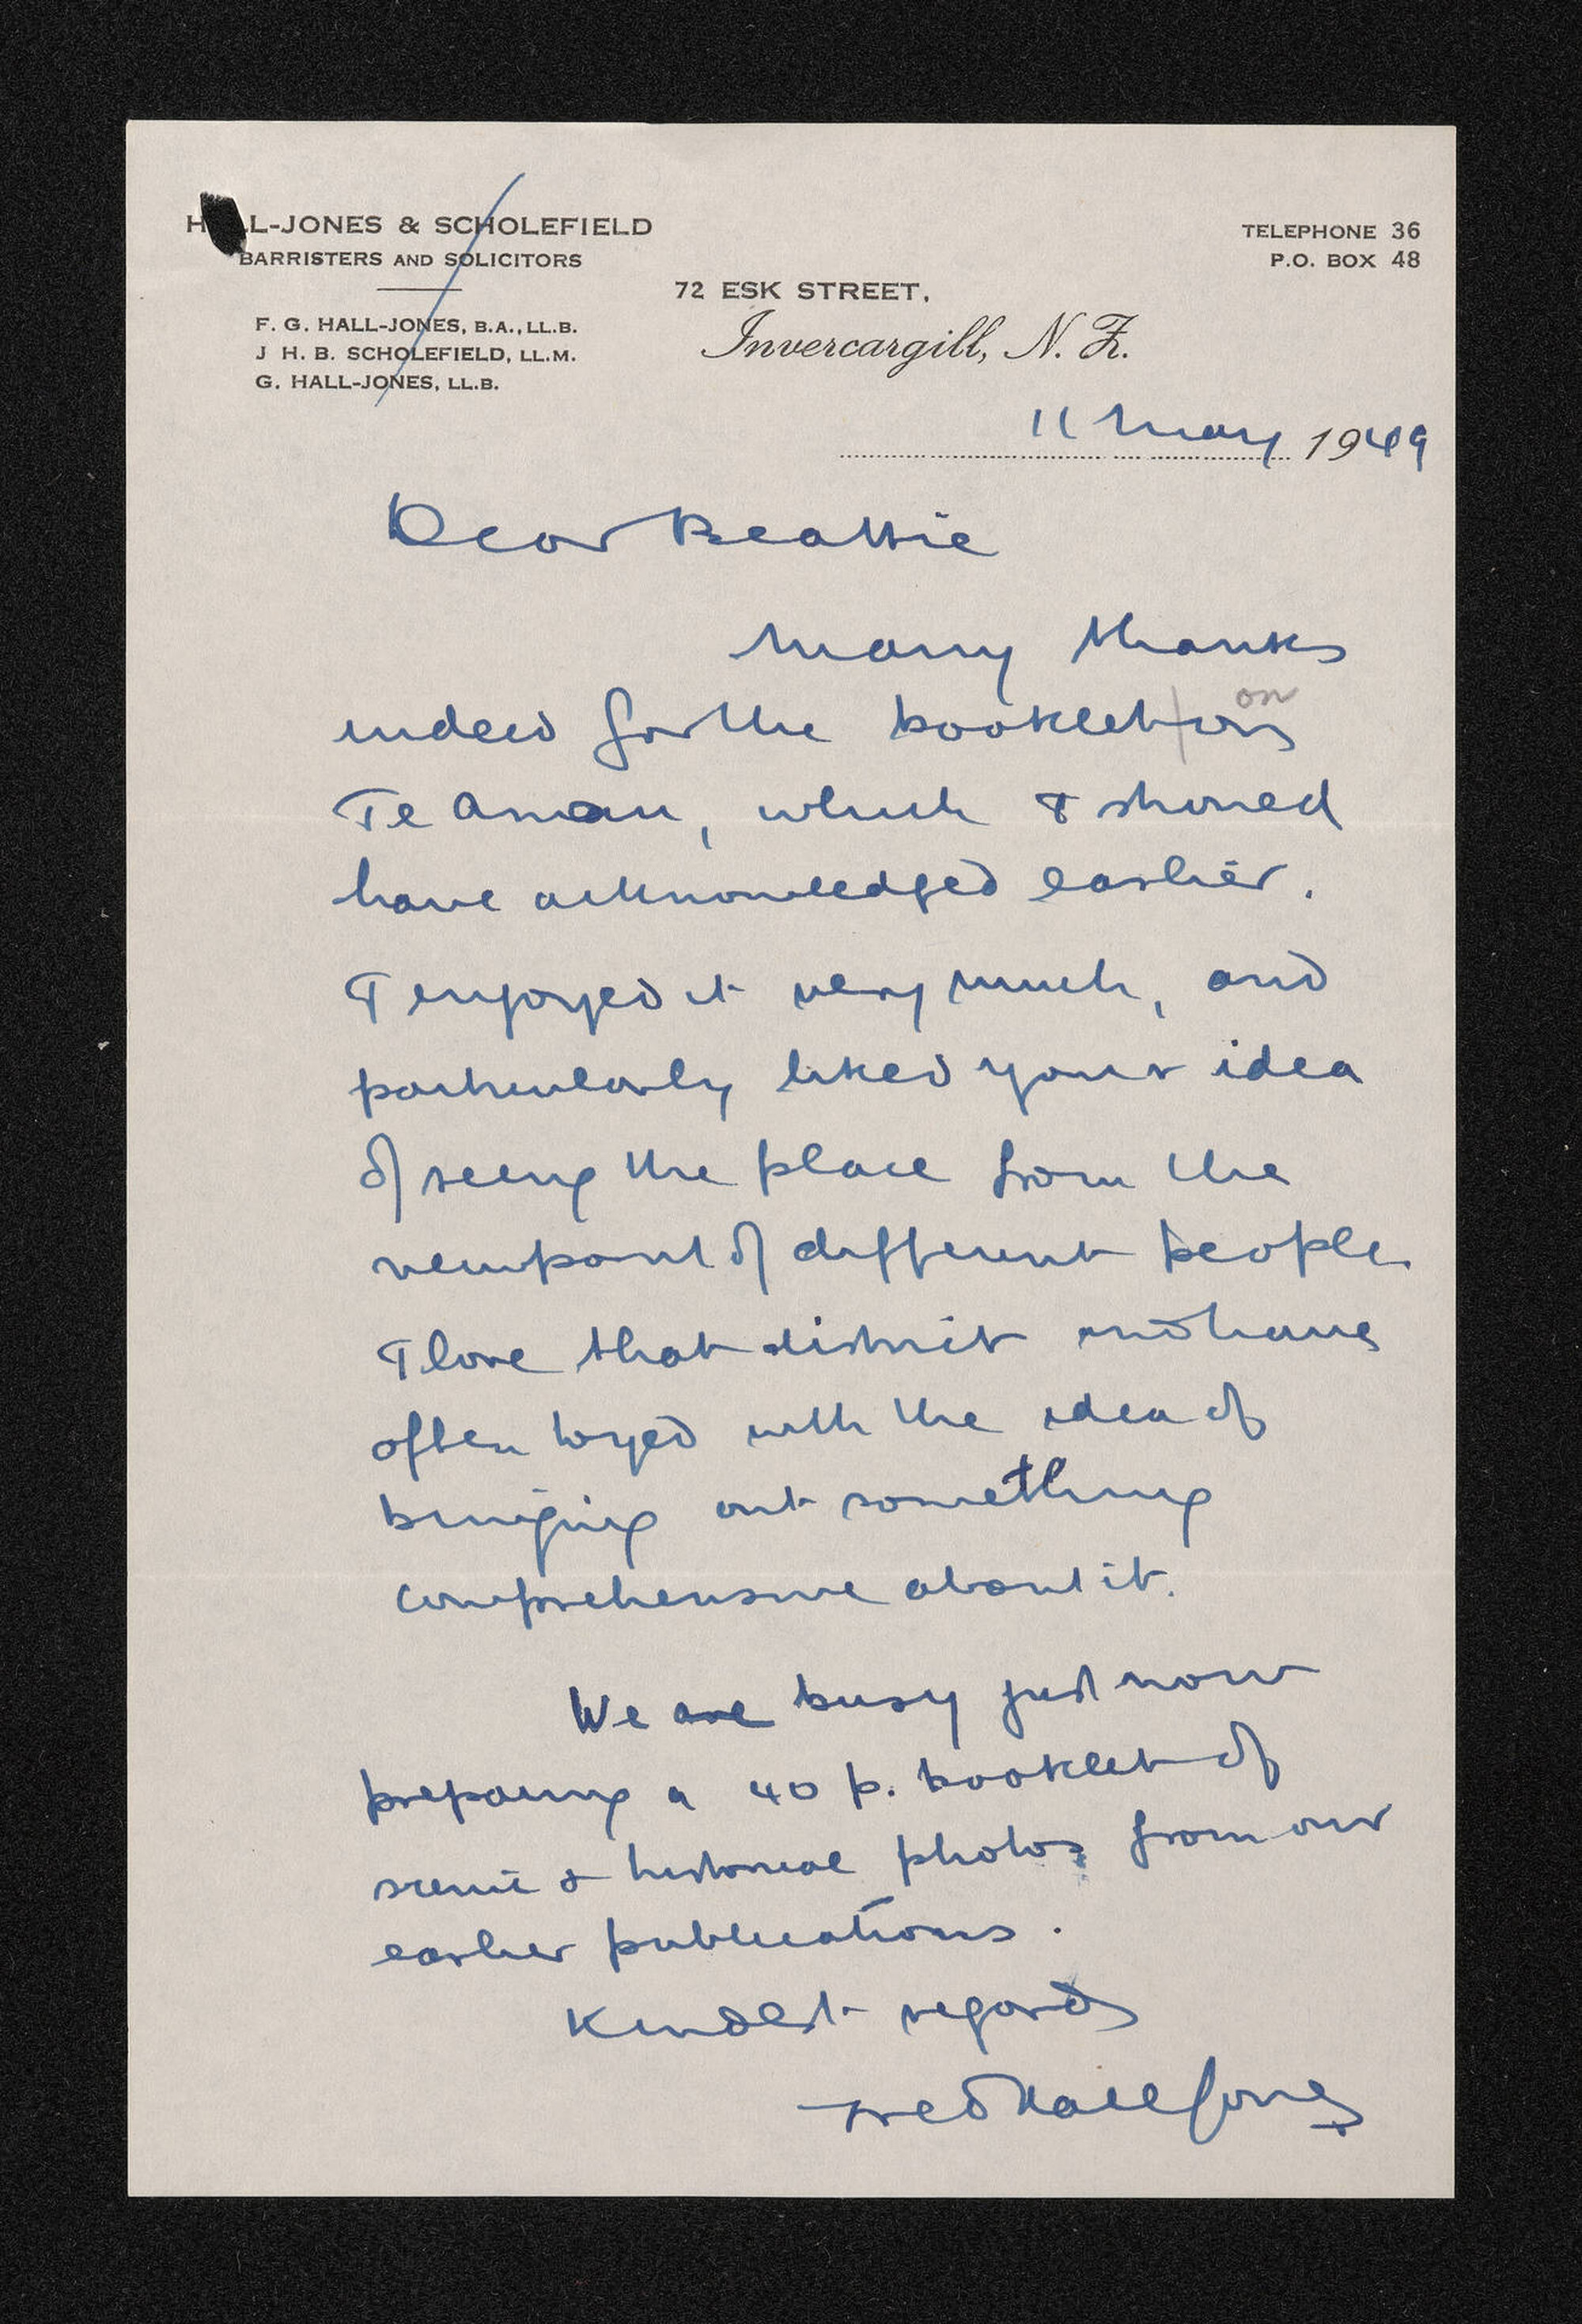 HALL-JONES & SCHOLEFIELD
BARRISTERS AND SOLICITORS
F. G. HALL-JONES, B.A., LL.B.
J H. B. SCHOLEFIELD, LL.M.
G. HALL-JONES, LL.B.
TELEPHONE 36
P.O. BOX 48
72 ESK STREET,
Invercargill, N. Z.
11 May 1949
Dear Beattie
Many thanks
on
indeed for the booklet on
Te Anau, which I should
have acknowledged earlier.
I enjoyed it very much, and
particularly liked your idea
of seeing the place from the
viewpoint of different people.
I love that district and have
often toyed with the idea of
bringing out something
comprehensive about it.
We are busy just now
preparing a 40 p. booklet of
scenic & historical photos from our
earlier publications.
Kindest regards
Fred Hall Jones